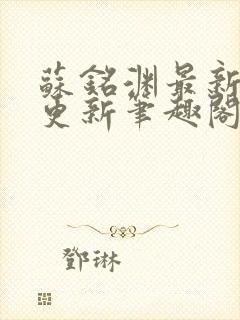 蘇銘渊最新
更新筆趣閣
鄧琳